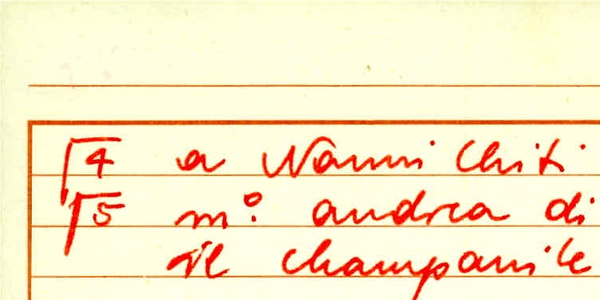 4 a Nanni Chiti
5 m.º andrea di
il champanile